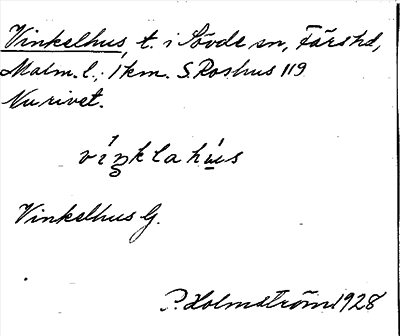 Vinkelhus, t. i Sövde sn, Färs hd,
Malm. l.; 1 km. S. Roshus 119
Nu rivet.
víŋklahùs
Vinkelhus G.
P. Holmström 1928